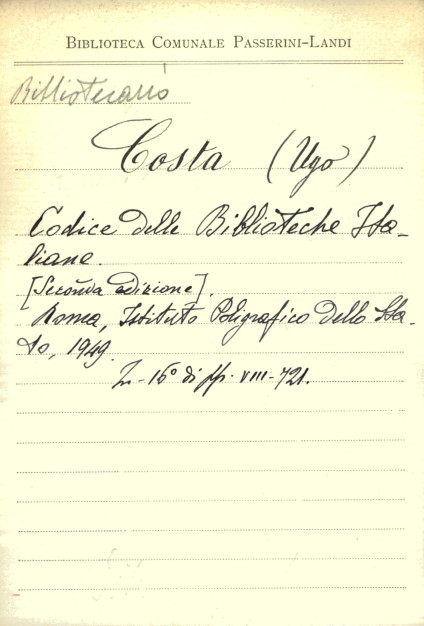 BIBLIOTECA COMUNALE PASSERINI-LANDI
Bibliotecario
Costa (Ugo)
Codice delle Biblioteche Ita-
liane.
[Seconda edizione].
Roma, Istituto Poligrafico dello Sta-
to, 1949.
In-16° di pp. VIII-721.